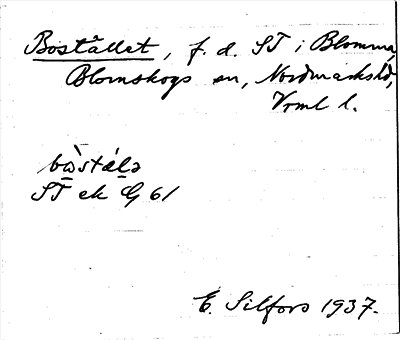 Bostället, f. d. ST i Blomma,
Blomskogs sn, Nordmarks hd,
Vrml l.
bὼstálə
ST ek G 61
E. Silfors 1937.